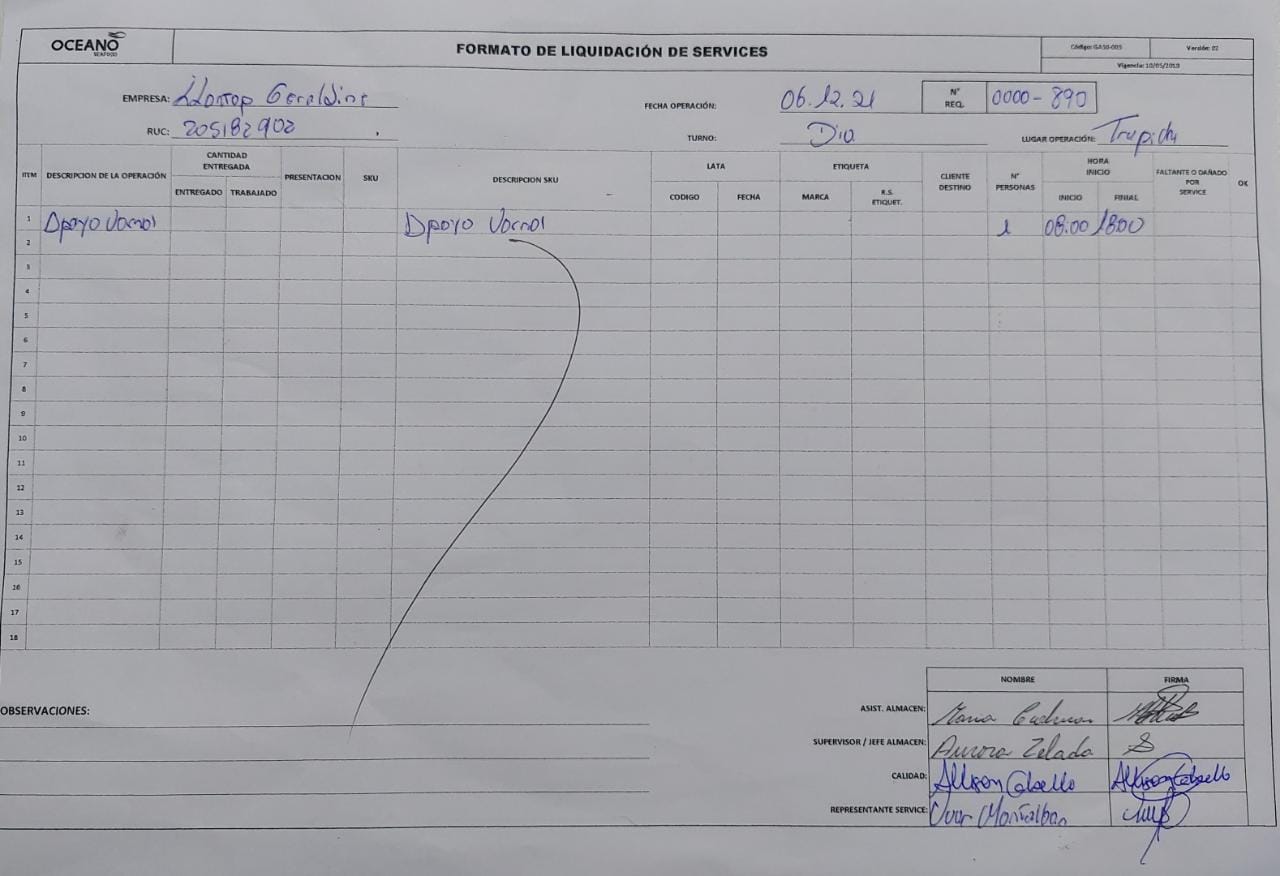 OCEANO
SEAFOOD
FORMATO DE LIQUIDACIÓN DE SERVICES
Código: GASG-005
Versión: 02
Vigencia: 10/05/2019
EMPRESA: Llontop Geraldine
FECHA OPERACIÓN: 06.12.21
N° REQ. 0000-890
RUC: 205182902
TURNO: Dia
LUGAR OPERACIÓN: Trapiche
ITEM DESCRIPCION DE LA OPERACIÓN CANTIDAD ENTREGADA PRESENTACION SKU DESCRIPCION SKU LATA ETIQUETA CLIENTE DESTINO N° PERSONAS HORA INICIO FALTANTE O DAÑADO POR SERVICE OK
ENTREGADO TRABAJADO CODIGO FECHA MARCA R.S. ETIQUET. INICIO FINIAL
1 Apoyo Apoyo 1 08:00 18:00
2
3
4
5
6
7
8
9
10
11
12
13
14
15
16
17
18
NOMBRE FIRMA
OBSERVACIONES:
ASIST. ALMACEN: Maria
SUPERVISOR / JEFE ALMACEN: Aurora Zelada
CALIDAD: Allison Cabello Allison Cabello
REPRESENTANTE SERVICE: Montalban